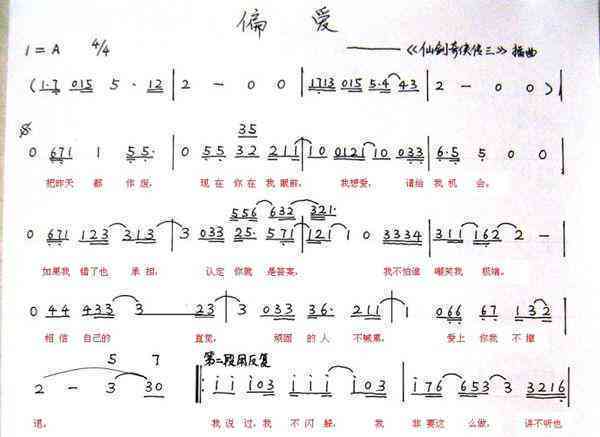 偏 爱
1 = A 4/4 ——《仙剑奇侠传三》插曲
( 1·7 015 5 · 12 | 2 - 0 0 | 1713 015 5·4 43 | 2 - 0 0 )
35
0 671 1 55· | 0 55 32 211 | 10 0121 10 033 | 6·5 5 0 0
把昨天 都 作废, 现在 你在 我 眼前, 我想爱, 请给 我 机 会。
556 632 321·
0 671 123 313 | 3 033 25· 571 | 121 1 0 3334 | 311 162 2 -
如果我 错了也 承担, 认定 你就 是答案, 我不怕谁 嘲笑我 极端。
0 44 433 3 23 | 3 033 36· 211 | 1 066 67 132
相信 自己的 直觉, 顽固 的人 不喊累, 爱上 你我 不撤
5 7 第二段用反复
2 - 3 30 ‖: i i i03 | i i i i03 | i76 653 3 3216
退。 我 说 过, 我 不 闪 躲, 我 非要这 么做, 讲不听也